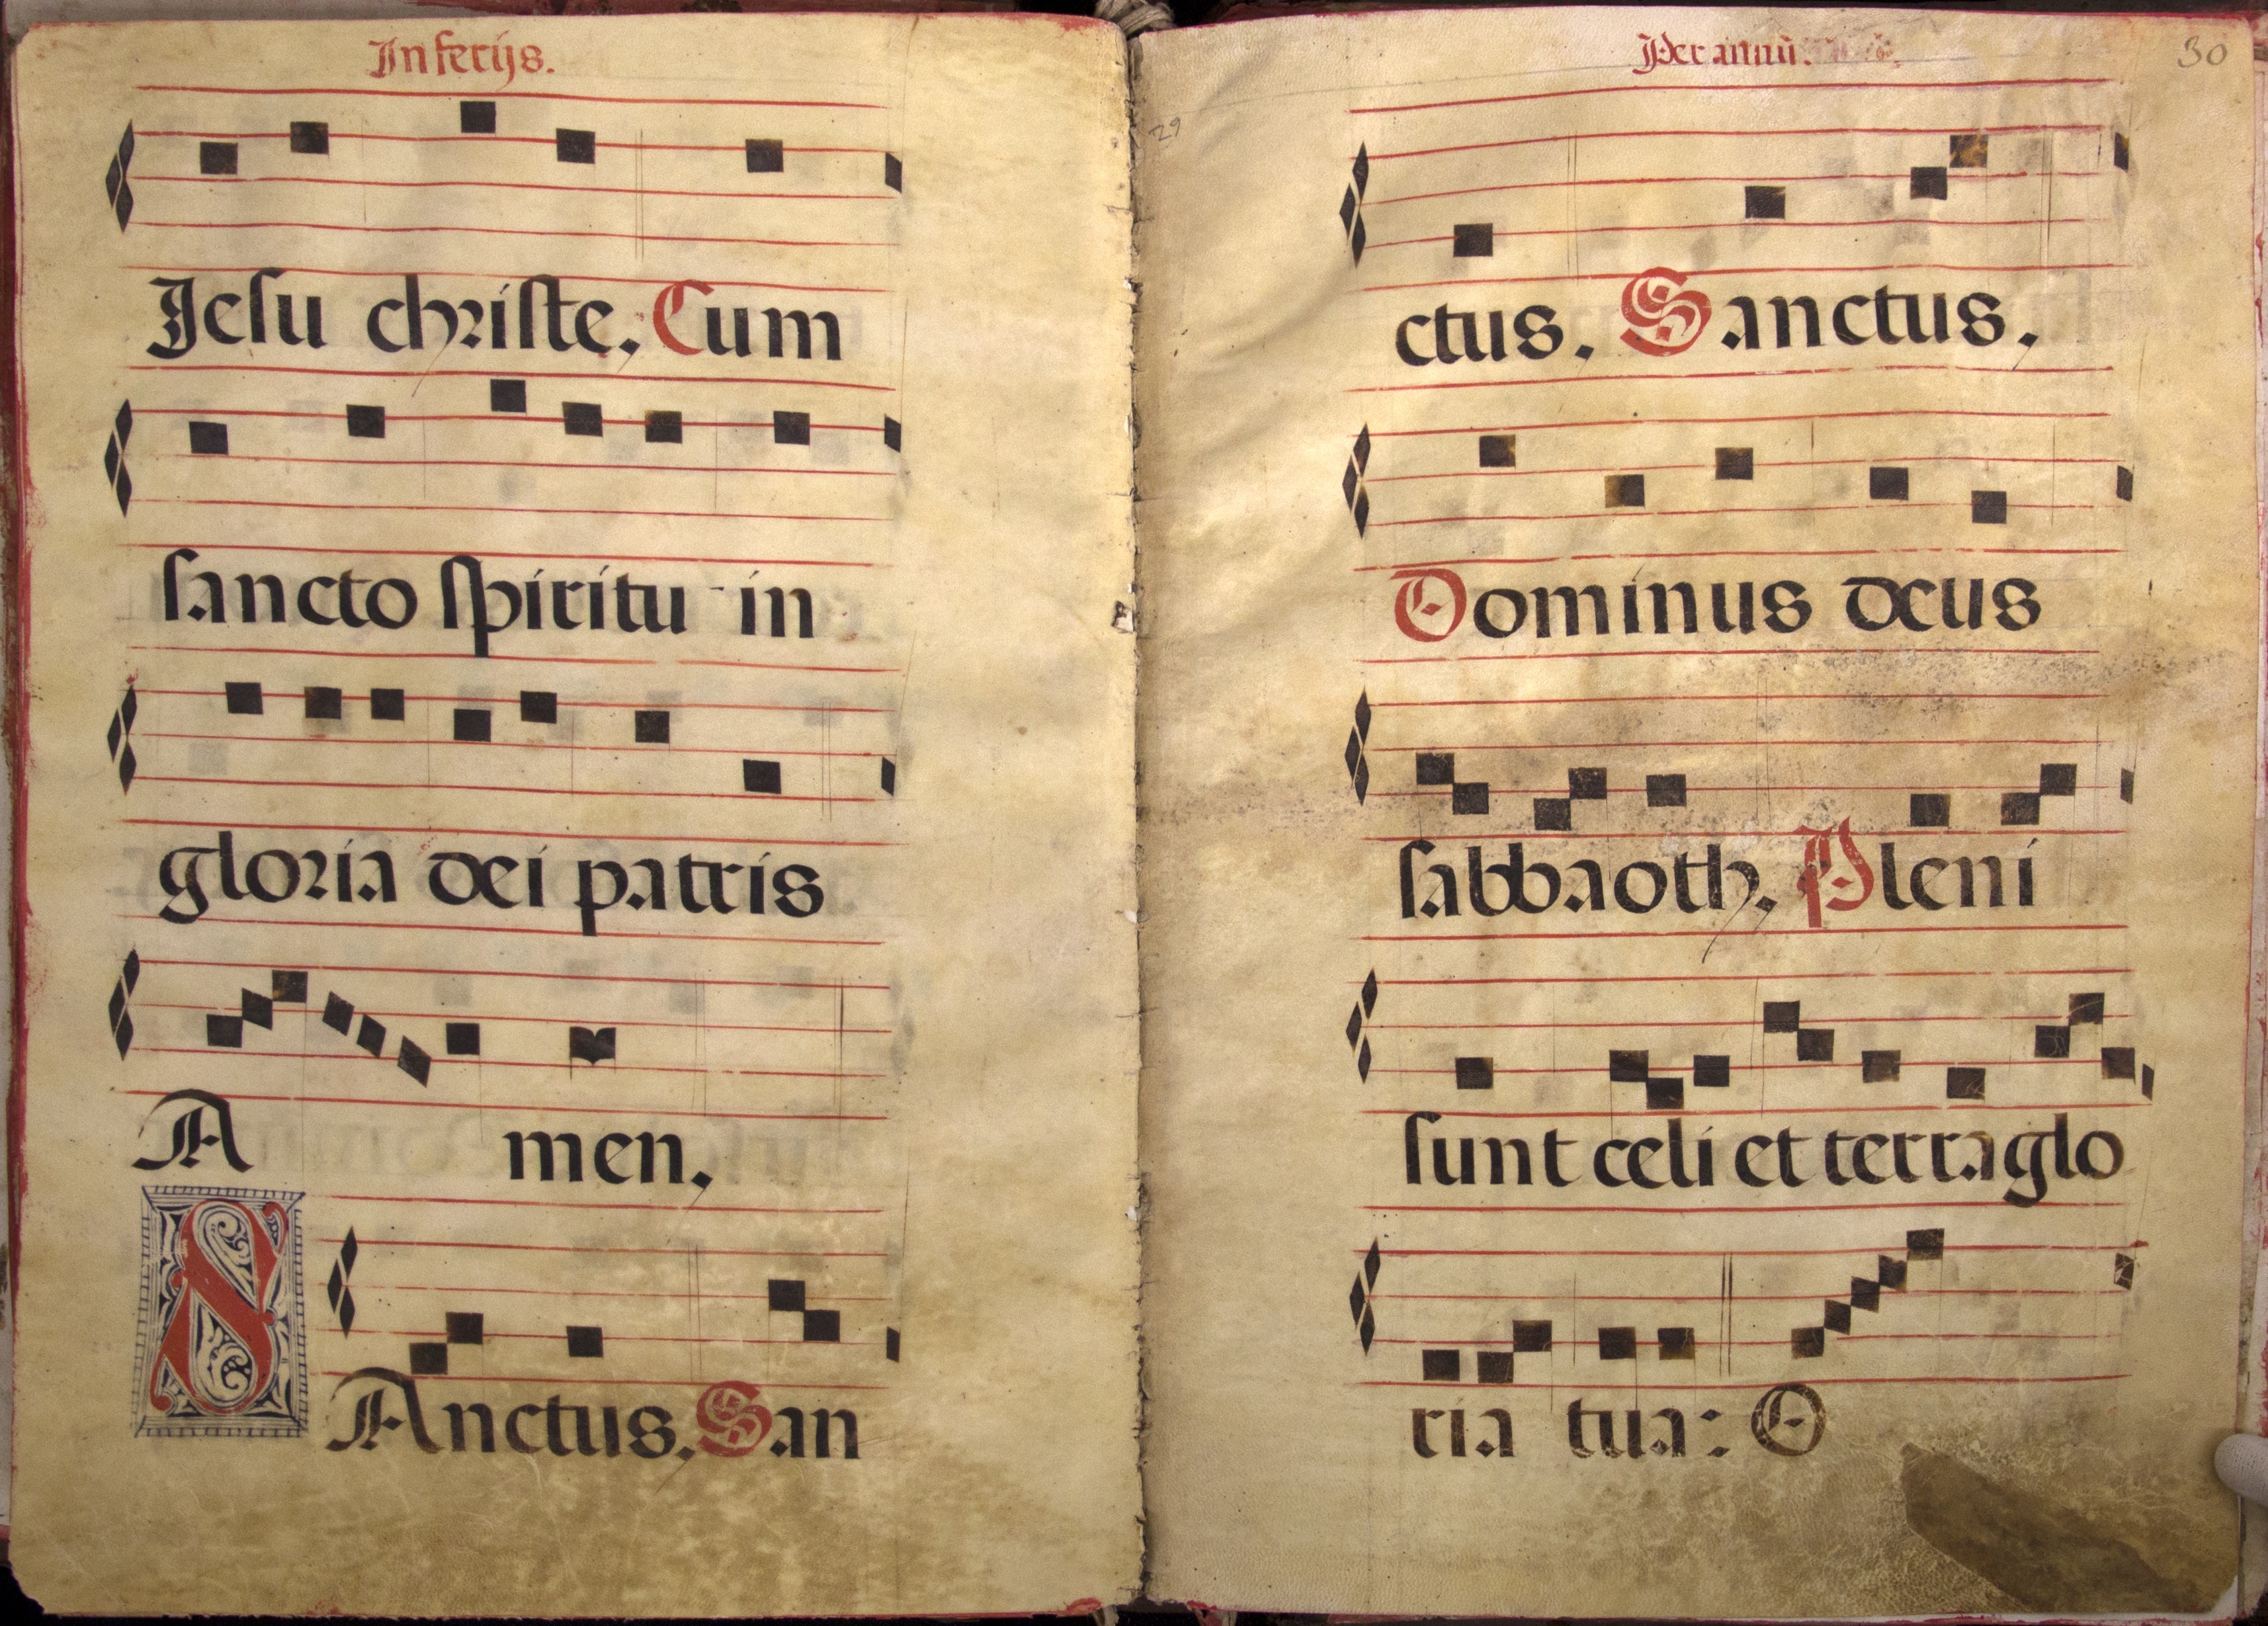 In ferijs.
Jesu christe. Cum
sancto spiritu in
gloria dei patris
A men.
SAnctus. San
Per annũ.
30
29
ctus. Sanctus.
Dominus deus
sabbaoth. Pleni
sunt celi et terra glo
ria tua: O